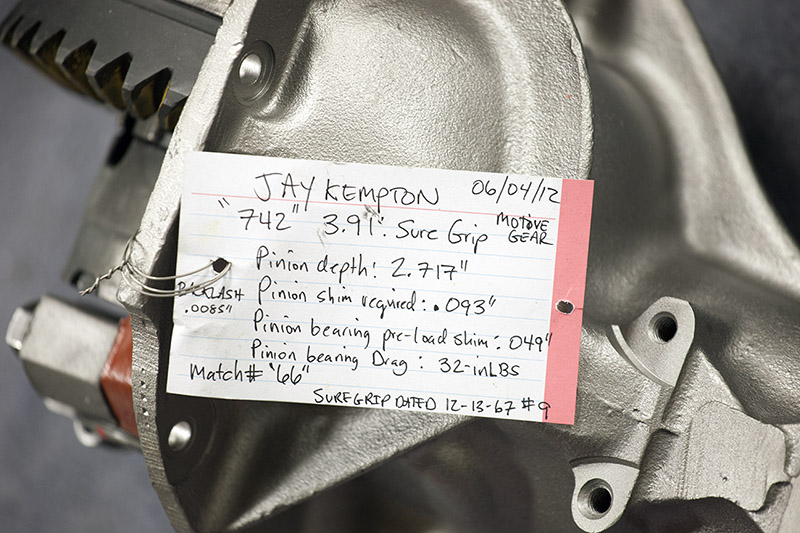 JAY KEMPTON 06/04/12
"742" 3.91: Sure Grip MOTIVE GEAR
Pinion depth: 2.717"
BACKLASH .0085"
Pinion shim required: .093"
Pinion bearing pre-load shim: 049"
Pinion bearing Drag: 32-inLBS
Match# "66"
SUREGRIP DATED 12-13-67 #9